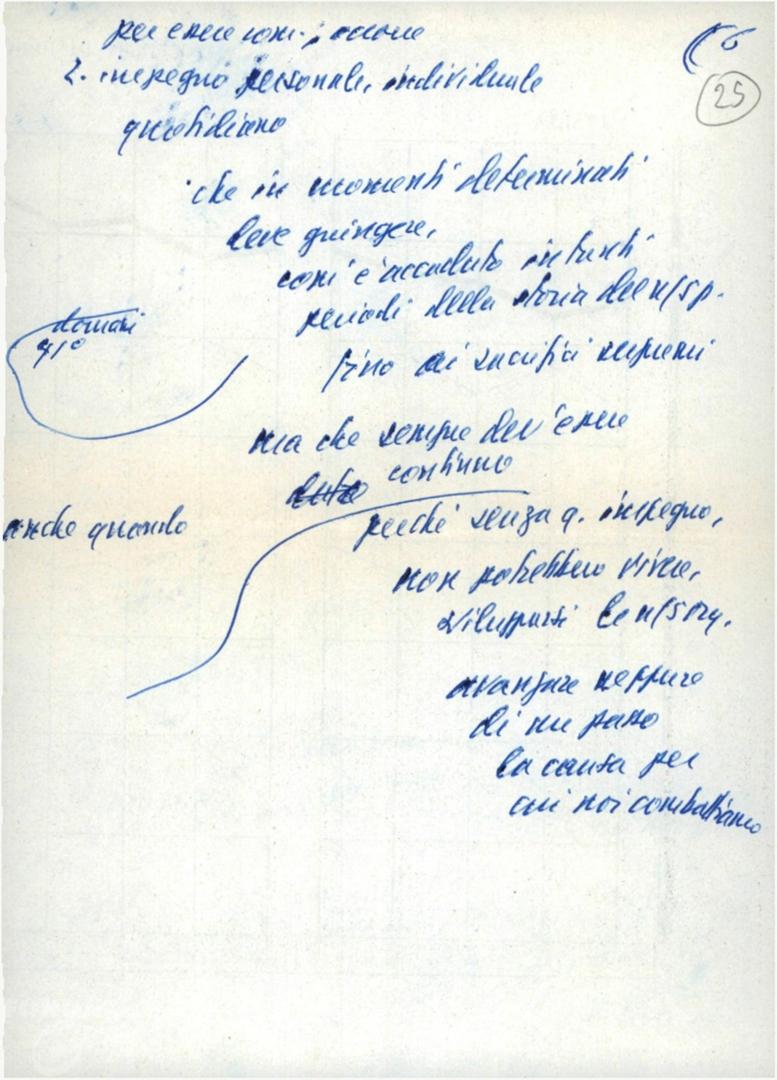 per essere com.
6
25
2. impegno personale, individuale
quotidiano
che in momenti determinati
deve giungere,
com'è accaduto in tanti
periodi della storia del n/s p.
fino ai sacrifici supremi
domani
41°
ma che sempre dev'essere
continuo
anche quando
perché senza q. impegno,
non potrebbero vivere,
svilupparsi le n/s org.
avanzare neppure
di un passo
la causa per
cui noi combattiamo